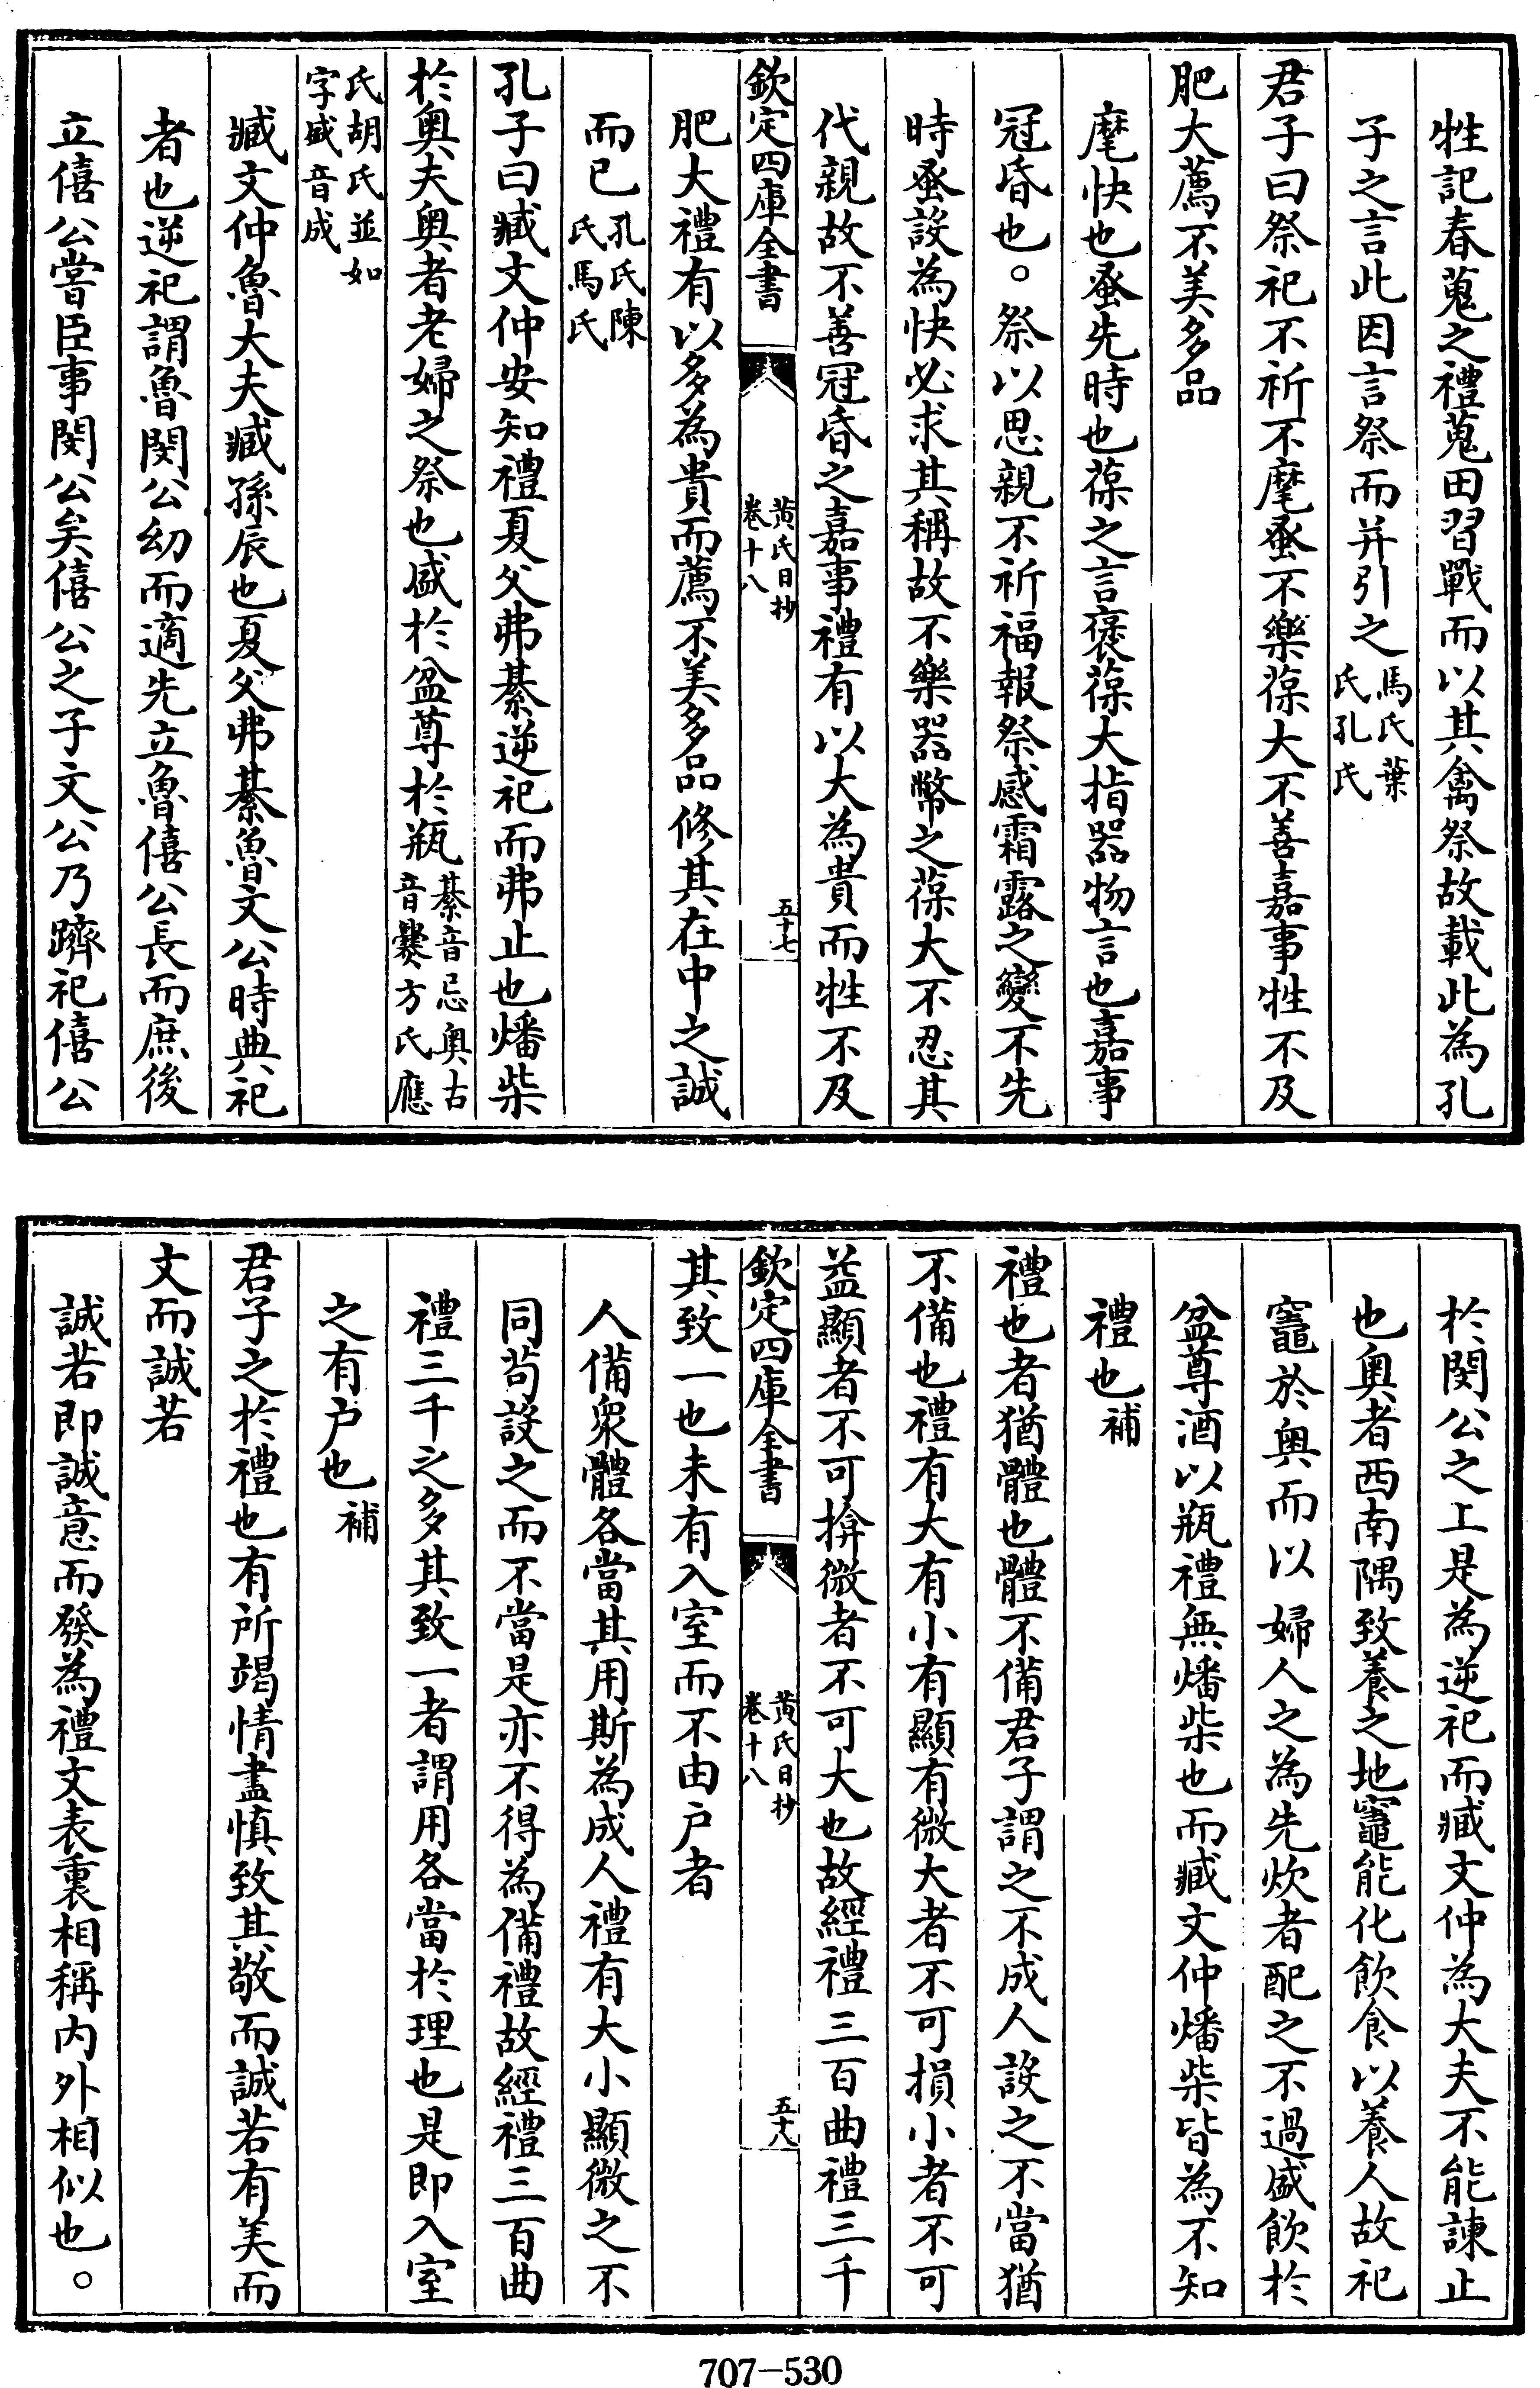 牲記春蒐之禮蒐田習戰而以其禽祭故載此為孔
子之言此因言祭而并引之馬氏葉氏孔氏
君子曰祭祀不祈不麾蚤不樂葆大不善嘉事牲不及
肥大薦不美多品
麾快也蚤先時也葆之言褒葆大指器物言也嘉事
冠昏也。祭以思親不祈福報祭感霜露之變不先
時蚤設為快必求其稱故不樂器幣之葆大不忍其
代親故不善冠昏之嘉事禮有以大為貴而牲不及
欽定四庫全書 黃氏日抄卷十八 五十七
肥大禮有以多為貴而薦不美多品修其在中之誠
而已孔氏陳氏馬氏
孔子曰臧文仲安知禮夏父弗綦逆祀而弗止也燔柴
於奧夫奧者老婦之祭也盛於盆尊於瓶綦音忌奧古音爨方氏應
氏胡氏並如字盛音成
臧文仲魯大夫臧孫辰也夏父弗綦魯文公時典祀
者也逆祀謂魯閔公幼而適先立魯僖公長而庶後
立僖公嘗臣事閔公矣僖公之子文公乃躋祀僖公
於閔公之上是為逆祀而臧文仲為大夫不能諫止
也奧者西南隅致養之地竈能化飲食以養人故祀
竈於奧而以婦人之為先炊者配之不過盛飲於
盆尊酒以瓶禮無燔柴也而臧文仲燔柴皆為不知
禮也補
禮也者猶體也體不備君子謂之不成人設之不當猶
不備也禮有大有小有顯有微大者不可損小者不可
益顯者不可揜微者不可大也故經禮三百曲禮三千
欽定四庫全書 黃氏日抄卷十八 五十八
其致一也未有入室而不由户者
人備衆體各當其用斯為成人禮有大小顯微之不
同苟設之而不當是亦不得為備禮故經禮三百曲
禮三千之多其致一者謂用各當於理也是即入室
之有户也補
君子之於禮也有所竭情盡慎致其敬而誠若有美而
文而誠若
誠若即誠意而發為禮文表裏相稱内外相似也。
707-530